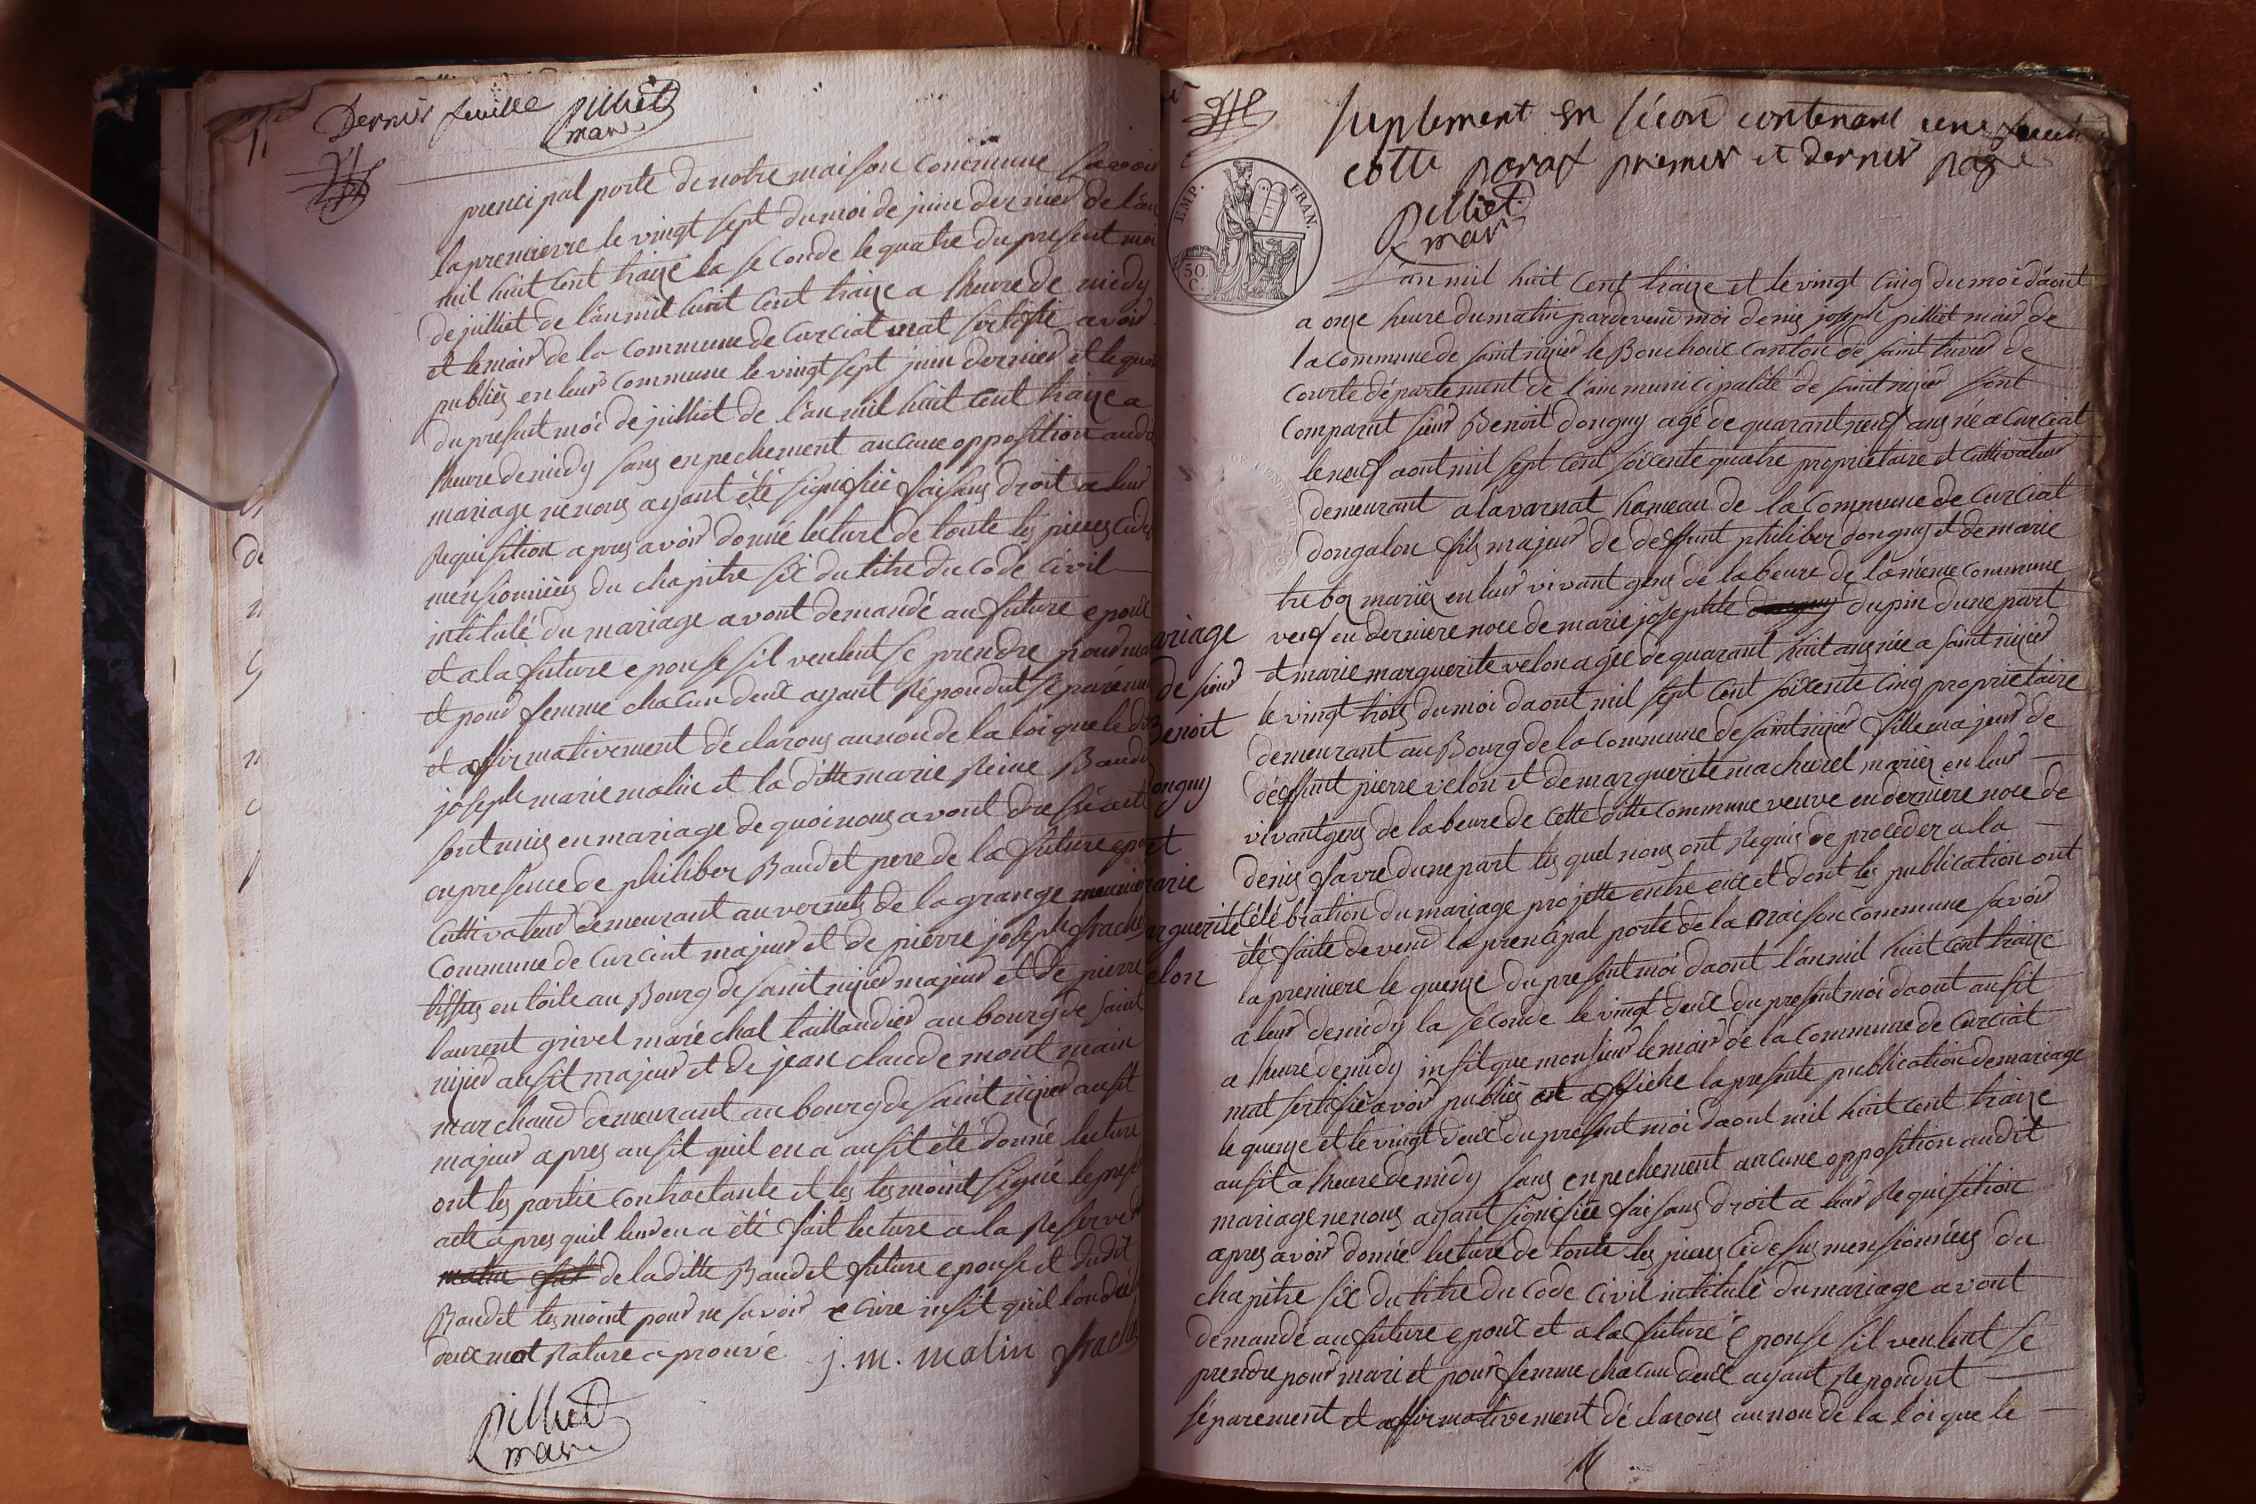 Dernier feuille pilliet
mair
prencipal porte de notre maison commune savoir
la premierre le vingt sept du moi de juin dernier de l'an
mil huit cent traize la seconde le quatre du present moi
de juilliet de l'an mil huit cent traize a lheure de midy
et le mair de la commune de Curciat mat sertifié avoir
publiés en leur commune le vingt sept juin dernier et le quatre
du present moi de juilliet de l'an mil huit cent traize a
lheure de midy sans enpechement aucune opposition audit
mariage ne nous ayant été signifiée faisans droit a leur
Requisition apres avoir donné lecture de toute les pieces ci des
mensionniées du chapitre six du titre du code Civil
intitulé du mariage avont demandé au future epoux
et a la future epouse sil veulent se prendre pour mari
et pour femme chacun deux ayant Répondut séparément
et affirmativement déclarons au non de la loi que le dit
joseph marie malin et la ditte marie Reine Baudet
sont unis en mariage de quoi nous avont dressé acte
en presence de philiber Baudet pere de la future epouse
Cultivateur demeurant au vernets de la grange
Commune de Curciat majeur et de pierre joseph
tissus en toile au Bourg de saint nizier majeur et de pierre
laurent grivel maréchal taillandier au bourg de saint
nizier ausit majeur et de jean claude mont main
marchand demeurant au bourg de saint nizier ausit
majeur apres ausit quil en a ausit été donné lecture
ont les partie contractante et les tesmoint signé le present
acte apres quil leur en a été fait lecture a la Reserve de
de la ditte Baudet future epouse et dudit
Baudet tesmoint pour ne savoir ecrire insit quil
deux mot Rature aprouvé j. m. malin
pilliet
mair
suplement en sicon contenant une feuille
cotte paraf premier et dernier page
pilliet
mair
EMP. FRAN.
50
C.
L'an mil huit cent traize et le vingt cinq du moi d'aout
a onze heure du matin pardevend moi denis joseph pilliet mair de
la commune de saint nizier le Bouchoux canton de saint trivier de
Courte département de l'ain municipalité de saint nizier sont
Comparut sieur Benoit dongny agé de quarant neuf ans né a Curciat
le neuf aout mil sept cent soixente quatre proprietaire et Cultivateur
demeurant a lavarnat hameau de la Commune de Curciat
dongalon fils majeur de deffunt philiber dongny et de marie
treboz mariés en leur vivant gens de labeure de la même commune
veuf en derniere noce de marie josephte dupin dune part
et marie marguerite velon agée de quarant huit ans née a saint nizier
le vingt trois du moi daout mil sept cent soixente cinq proprietaire
demeurant au Bourg de la commune de saint nizier fille majeur de
déffunt pierre velon et de marguerite machurel mariés en leur
vivant gens de labeure de cette ditte commune veuve en derniere noce de
denis favre dune part les quel nous ont Requis de procéder a la
Célébration du mariage projette entre eux et dont les publication ont
été faite devend la prencipal porte de la maison commune savoir
la premiere le quenze du present moi daout l'an mil huit cent traize
a leur de midy la seconde le vingt deux du present moi daout ausit
a lheure de midy insit que monsieur le mair de la commune de Curciat
mat sertifié avoir publiés et affiche la presente publication de mariage
le quenze et le vingt deux du present moi daout mil huit cent traize
ausit a lheure de midy sans enpechement aucune opposition audit
mariage ne nous ayant signifiée faisans droit a leur Requisition
apres avoir donné lecture de toute les pieces cidesus mensionnées du
chapitre six du titre du code Civil intitulé du mariage avont
demandé au future epoux et a la future epouse sil veulent se
prendre pour mari et pour femme chacun deux ayant Repondut
séparement et affirmativement déclarons au non de la loi que le
mariage
de sieur
Benoit
dongny
et
marie
marguerite
velon